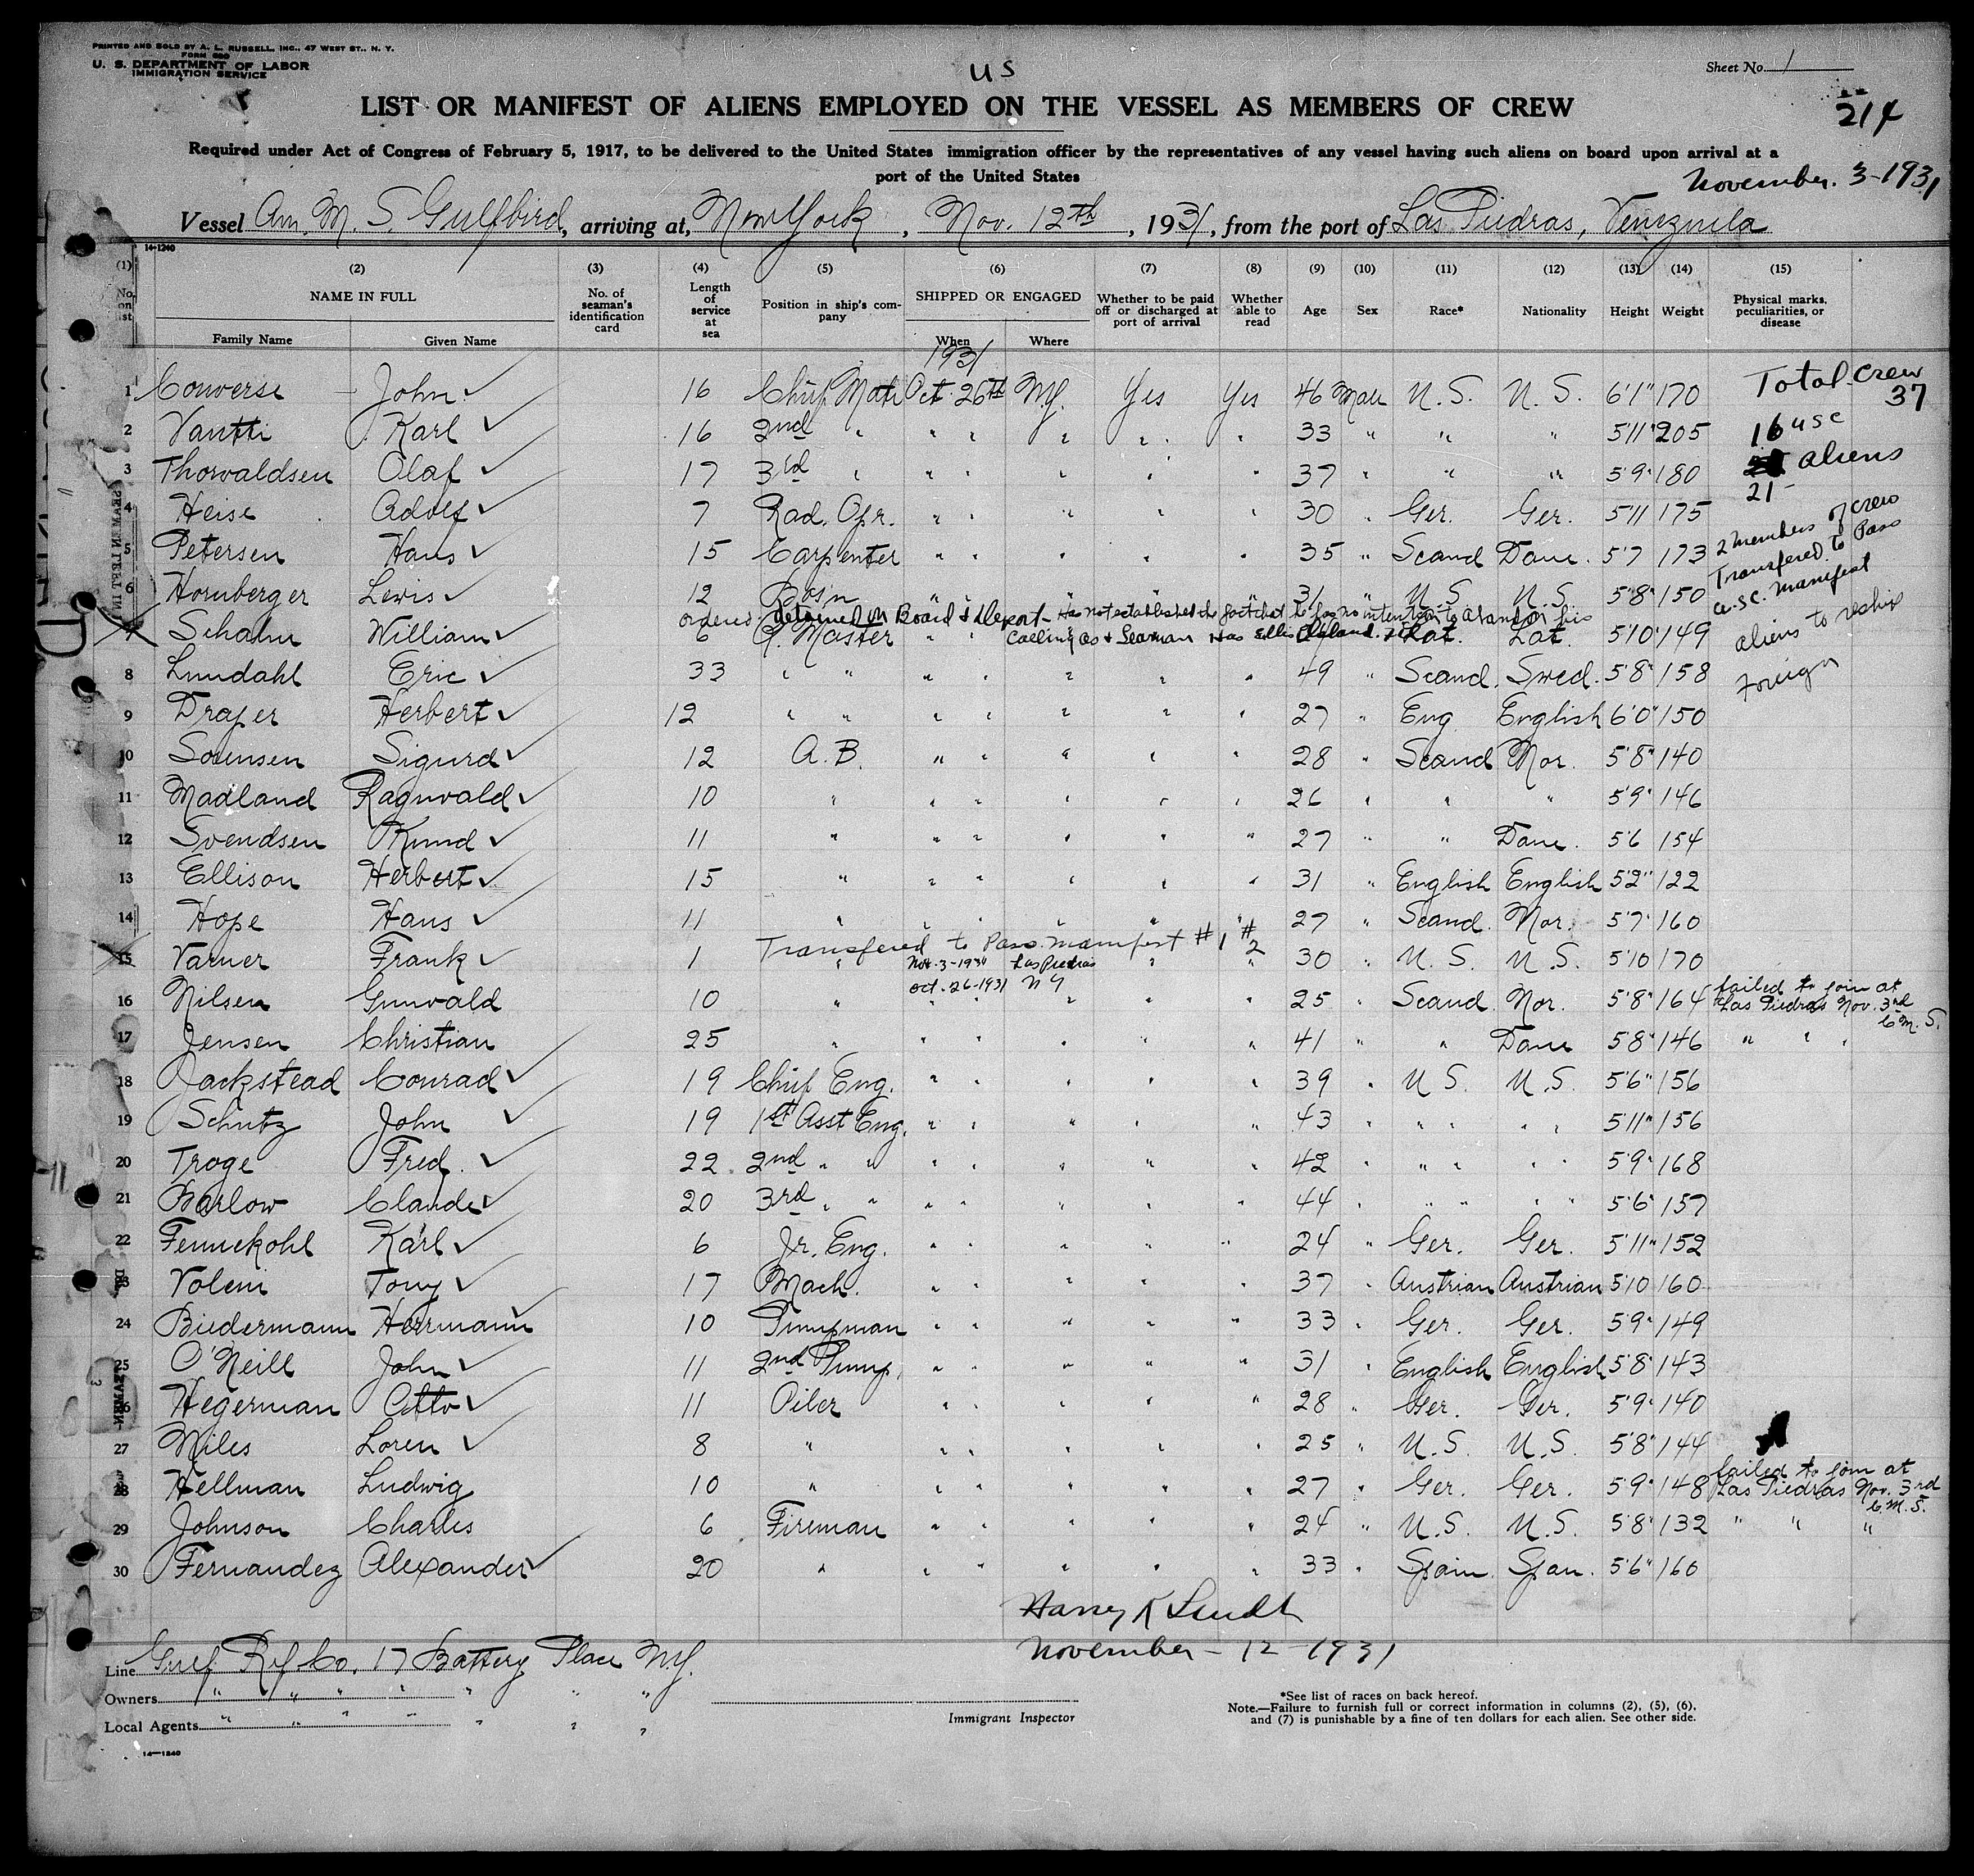 PRINTED AND SOLD BY A. L. RUSSELL, INC., 47 WEST ST., N. Y.
FORM 680
U. S. DEPARTMENT OF LABOR
IMMIGRATION SERVICE
US
Sheet No. 1
LIST OR MANIFEST OF ALIENS EMPLOYED ON THE VESSEL AS MEMBERS OF CREW
214
Required under Act of Congress of February 5, 1917, to be delivered to the United States immigration officer by the representatives of any vessel having such aliens on board upon arrival at a
port of the United States
November. 3-1931
Vessel Am. M. S. Gulfbird, arriving at, New York, Nov. 12th, 1931, from the port of Las Piedras, Venezuela
14-1240
(1) (2) (3) (4) (5) (6) (7) (8) (9) (10) (11) (12) (13) (14) (15)
No. on list NAME IN FULL No. of seaman's identification card Length of service at sea Position in ship's company SHIPPED OR ENGAGED Whether to be paid off or discharged at port of arrival Whether able to read Age Sex Race* Nationality Height Weight Physical marks, peculiarities, or disease
Family Name Given Name When Where
1931
1 Converse John ✓ 16 Chief Mate Oct. 26th NY. Yes Yes 46 Male U.S. U.S. 6'1" 170 Total Crew 37
2 Vantti Karl ✓ 16 2nd " " " " " " 33 " " " 5'11" 205 16 USC
3 Thorvaldsen Olaf ✓ 17 3rd " " " " " " 37 " " " 5'9" 180 aliens
21
4 Heise Adolf ✓ 7 Rad. Opr. " " " " " 30 " Ger. Ger. 5'11 175
5 Petersen Hans ✓ 15 Carpenter " " " " " 35 " Scand Dane. 5'7 173 2 members of crew
Transfered to Pass
6 Hornberger Lewis ✓ 12 Bos'n " " " " " 31 " U.S. U.S. 5'8" 150 U.S.C. manifest
ordered detained on Board & Deport - Has not established the fact that he has no intention to abandon his
calling as a Seaman
7 Schahn William ✓ 6 Q. Master " " Lat. Lat. 5'10" 149 aliens to reship
8 Lundahl Eric ✓ 33 " " " " " " " 49 " Scand. Swed. 5'8" 158 Foreign
9 Draper Herbert ✓ 12 " " " " " " " 27 " Eng English 6'0" 150
10 Sorensen Sigurd ✓ 12 A.B. " " " " " 28 " Scand Nor. 5'8" 140
11 Madland Ragnvald ✓ 10 " " " " " " 26 " " " 5'9" 146
12 Svendsen Knud ✓ 11 " " " " " " 27 " " Dane. 5'6 154
13 Ellison Herbert ✓ 15 " " " " " " 31 " English English 5'2" 122
14 Hope Hans ✓ 11 " " " " " " 27 " Scand. Nor. 5'7" 160
Transfered to Pass. manifest #1 #2
15 Varner Frank ✓ 1 " Nov. 3-1931 Las Piedras " " 30 " U.S. U.S. 5'10 170
oct. 26-1931 NY
16 Nilsen Gunvald 10 " " " " " " 25 " Scand. Nor. 5'8" 164 failed to join at
Las Piedras Nov. 3rd
C.M.S.
17 Jensen Christian 25 " " " " " " 41 " " Dane 5'8" 146 " " "
18 Jackstead Conrad ✓ 19 Chief Eng. " " " " " 39 " U.S. U.S. 5'6" 156
19 Schutz John ✓ 19 1st Asst Eng. " " " " " 43 " " " " " 5'11" 156
20 Troge Fred. ✓ 22 2nd " " " " " " " 42 " " " " " 5'9" 168
21 Barlow Claude ✓ 20 3rd " " " " " " " 44 " " " " 5'6" 157
22 Fennekohl Karl ✓ 6 Jr. Eng. " " " " " 24 " Ger. Ger. 5'11" 152
23 Voleni Tony ✓ 17 Mach. " " " " " 37 " Austrian Austrian 5'10 160
24 Biedermann Herrmann ✓ 10 Pumpman " " " " " 33 " Ger. Ger. 5'9" 149
25 O'Neill John ✓ 11 2nd Pump. " " " " " 31 " English English 5'8" 143
26 Hegerman Otto ✓ 11 Oiler " " " " " 28 " Ger. Ger. 5'9" 140
27 Niles Loren ✓ 8 " " " " " " 25 " U.S. U.S. 5'8" 144
28 Hellman Ludwig 10 " " " " " " 27 " Ger. Ger. 5'9" 148 failed to join at
Las Piedras Nov. 3rd
C.M.S.
29 Johnson Charles 6 Fireman " " " " " 24 " U.S. U.S. 5'8" 132 " " "
30 Fernandez Alexander ✓ 20 " " " " " " 33 " Spain. Span. 5'6" 160
November-12-1931
Line Gulf Ref Co. 17 Battery Place N.Y.
Owners " " " " " " "
Local Agents " " " " " " "
Immigrant Inspector
*See list of races on back hereof.
Note.—Failure to furnish full or correct information in columns (2), (5), (6),
and (7) is punishable by a fine of ten dollars for each alien. See other side.
14—1240